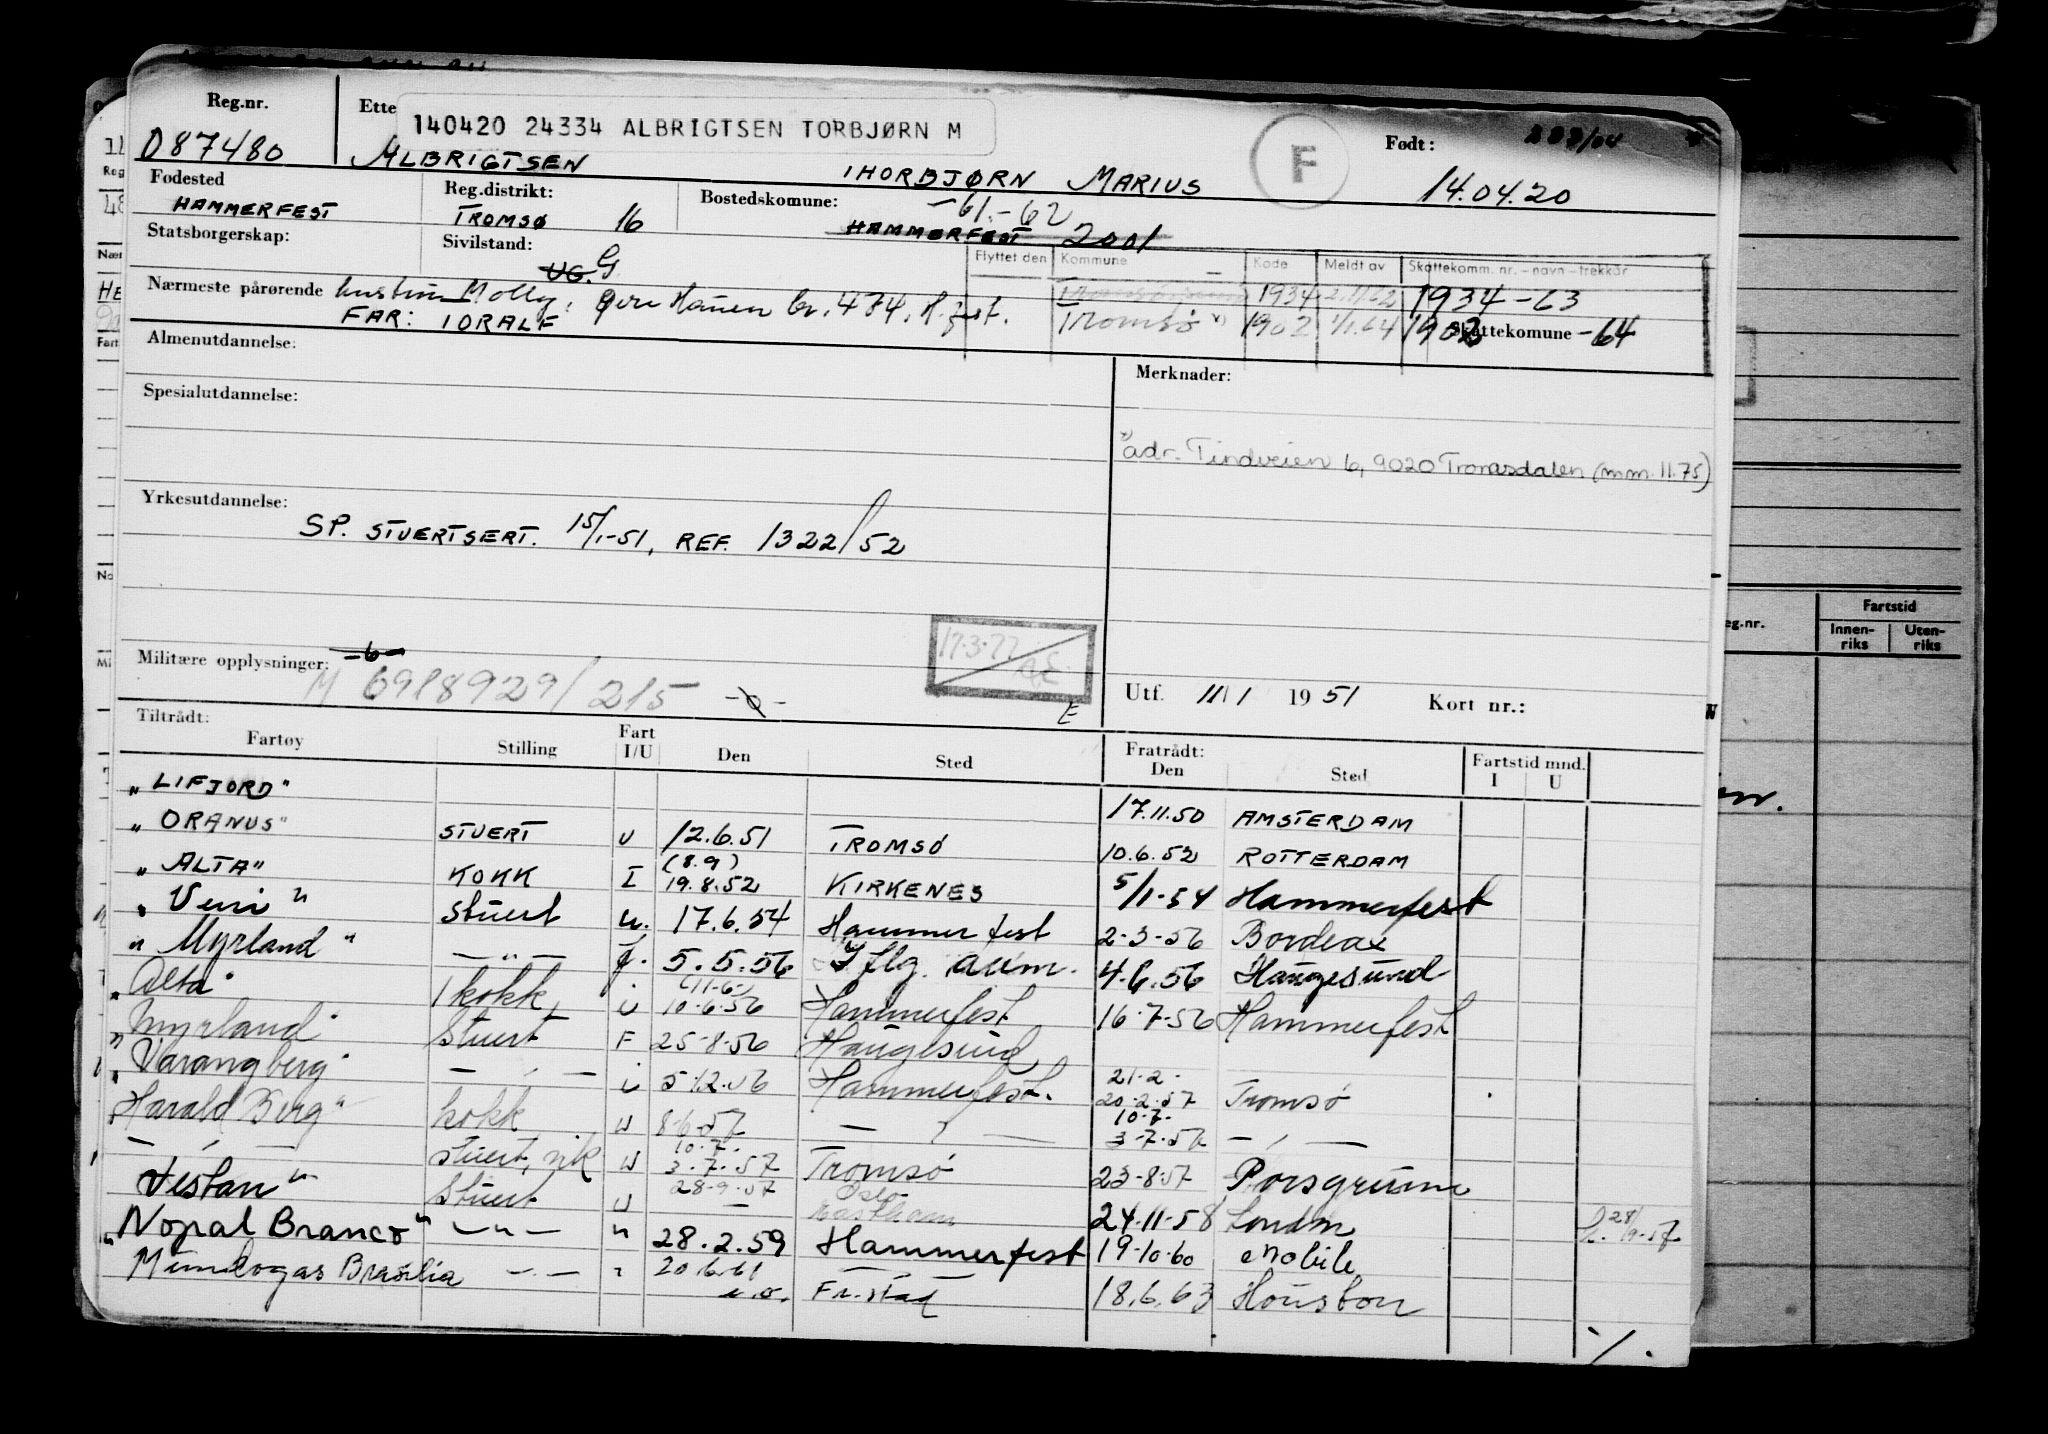 Reg.nr. Ette 140420 24334 ALBRIGTSEN TORBJØRN M F Født:
D87480 ALBRIGTSEN THORBJØRN MARIUS 14.04.20
Fødested Reg.distrikt: Bostedskomune: -61-62
HAMMERFEST TROMSØ 16 HAMMERFEST 2001
Statsborgerskap: Sivilstand: UG. G Flyttet den Kommune Kode Meldt av Skattekomm. nr. – navn – trekkår
Nærmeste pårørende hustru Molly, Øvre Hauen br. 474, H.fest. 1934 1934-63
FAR: TORALF Tromsø x) 1902 1/1.64 1902 Skattekomune -64
Almenutdannelse: Merknader:
Spesialutdannelse:
x) adr. Tindveien 6, 9020 Tromsdalen (mm. 11.75)
Yrkesutdannelse:
SP. STUERTSERT. 15/1-51, REF. 1322/52
17.3.77
Militære opplysninger: -6-
M 6918929/215 E
Utf. 11/1 1951 Kort nr.:
Tiltrådt: Fratrådt:
Fartøy Stilling Fart I/U Den Sted Den Sted Fartstid mnd. I U
"LIFJORD" 17.11.50 AMSTERDAM
"ORANUS" STUERT U 12.6.51 TROMSØ 10.6.52 ROTTERDAM
"ALTA" KOKK I (8.9) 19.8.52 KIRKENES 5/1-54 Hammerfest
"Veni" Stuert u. 17.6.54 Hammerfest 2-3-56 Bordeax
"Myrland" —"— f. 5.5.56 4.6.56 Haugesund
"Alta" kokk i (11-6) 10-6-56 Hammerfest 16-7-56 Hammerfest
"Myrland" Stuert F 25-8-56 Haugesund
"Varangberg" —"— i 5-12-56 Hammerfest. 21-2- 20-2-57 Tromsø
"Harald Berg" kokk U 8-6-57 —"— 10-7- 3-7-57 —"—
—"— stuert, vik U 10-7- 3-7-57 Tromsø 23-8-57 Porsgrunn
"Vestan" Stuert U 28-9-57 Oslo 24-11-58 London 28/9-57
"Nopal Branco" —"— " 28.2.59 Hammerfest 19-10-60 Mobile
Mundogas Brasilia —"— " 20.6.61 Fr.stad 18.6.63 Houston
Fartstid
Innen-riks Uten-riks